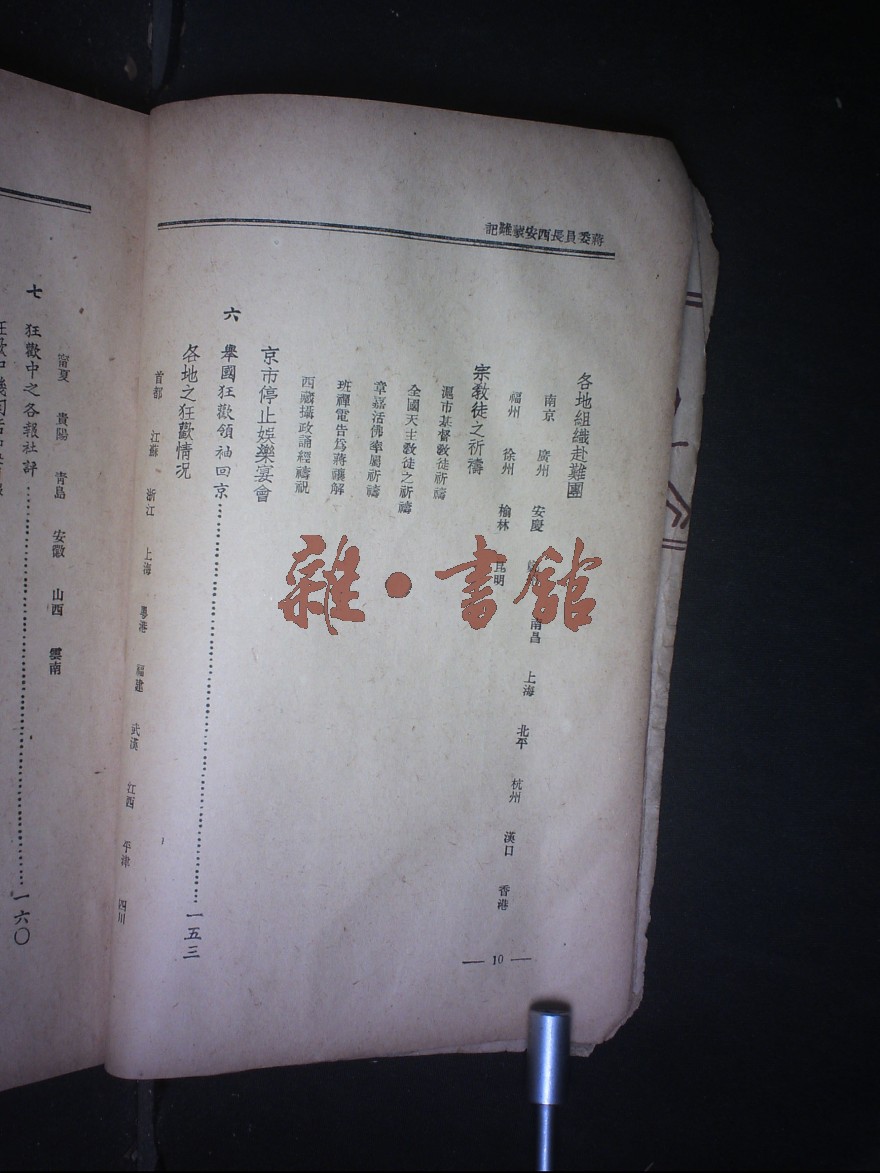 蔣委員長西安蒙難記
各地組織赴難團
南京 廣州 安慶 南昌 上海 北平 杭州 漢口 香港
福州 徐州 榆林 昆明
宗教徒之祈禱
滬市基督教徒祈禱
全國天主教徒之祈禱
章嘉活佛率屬祈禱
班禪電告爲蔣禳解
西藏攝政誦經禱祝
京市停止娛樂宴會
六 舉國狂歡領袖回京……一五三
各地之狂歡情况
首都 江蘇 浙江 上海 粵港 福建 武漢 江西 平津 四川
甯夏 貴陽 青島 安徽 山西 雲南
七 狂歡中之各報社評……一六〇
— 10 —
雜·書館